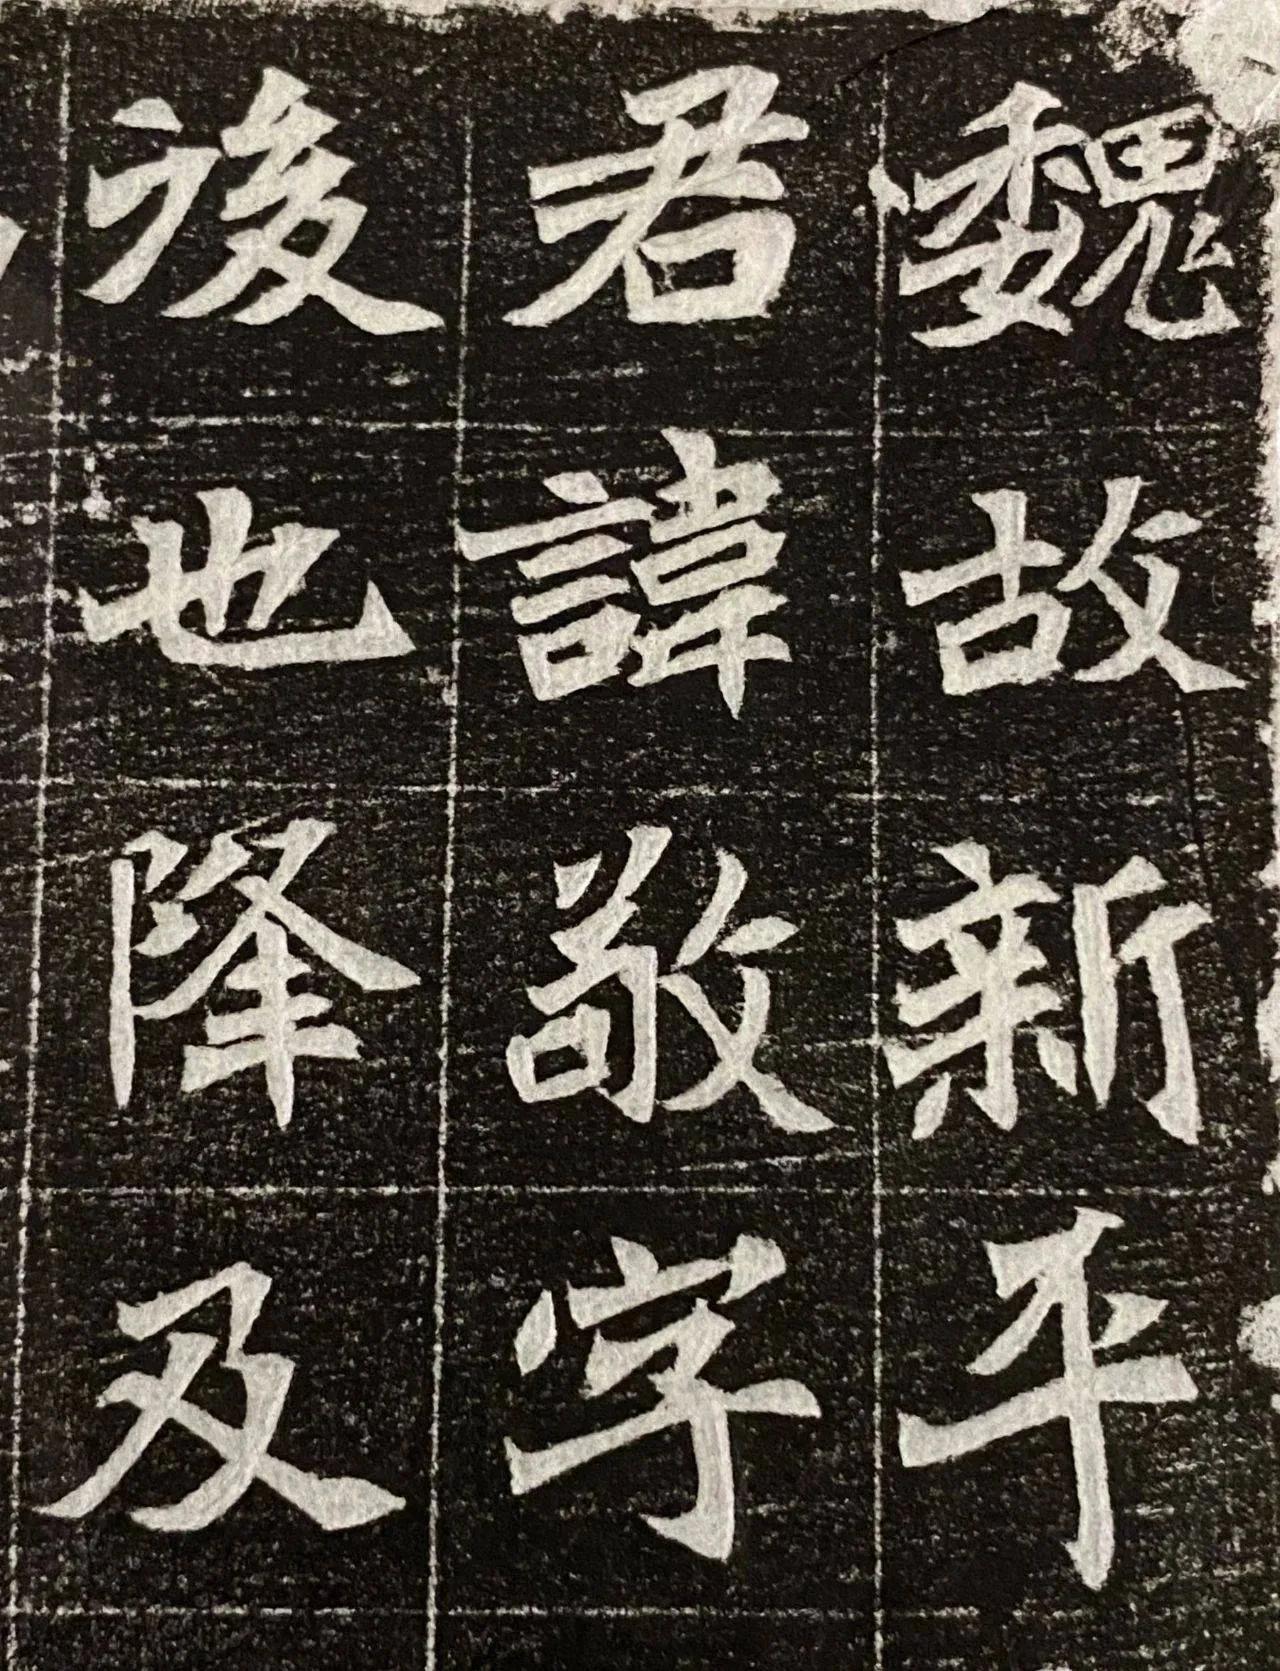 魏故新平
君諱敬字
後也降及